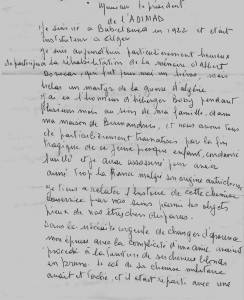 Monsieur le président
de l'ADIMAD
Je suis né à Bab el Oued en 1922 et était
instituteur à Alger
Je suis aujourd'hui particulièrement heureux
de participer à la réhabilitation de la mémoire d'Albert
qui fut pour moi un héros, mais
hélas un martyr de la guerre d'algérie
J'ai eu l'honneur d'héberger Bobby pendant
plusieurs mois au sein de ma famille, dans
ma maison de Birmandreis, et nous avons tous
été particulièrement traumatisés par la fin
tragique de ce jeune presque enfant, condamné
fusillé et je dirai assassiné pour avoir
aimé trop la france malgré son origine
Je tiens à relater l'histoire de cette chemise
conservée par nos soins parmi les objets
pieux de nos êtres chers disparus.
Dans la nécessité urgente de changer d'apparence
mon épouse avec la complicité d'une amie avaient
procédé à la teinture de ses cheveux blonds
en brun. Le col de sa chemise militaire
avait et il était reparti avec une